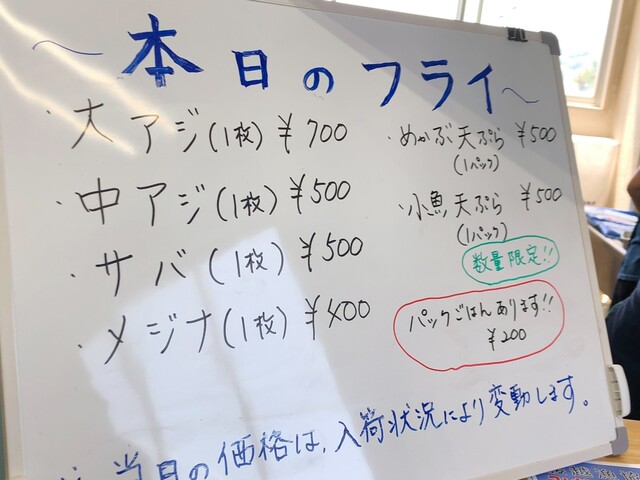 ～本日のフライ～
・大アジ(1枚) ¥700
・中アジ(1枚) ¥500
・サバ(1枚) ¥500
・メジナ(1枚) ¥400
・めかぶ天ぷら ¥500
(1パック)
・小魚天ぷら ¥500
(1パック)
数量限定!!
パックごはんあります!!
¥200
当日の価格は、入荷状況により変動します。